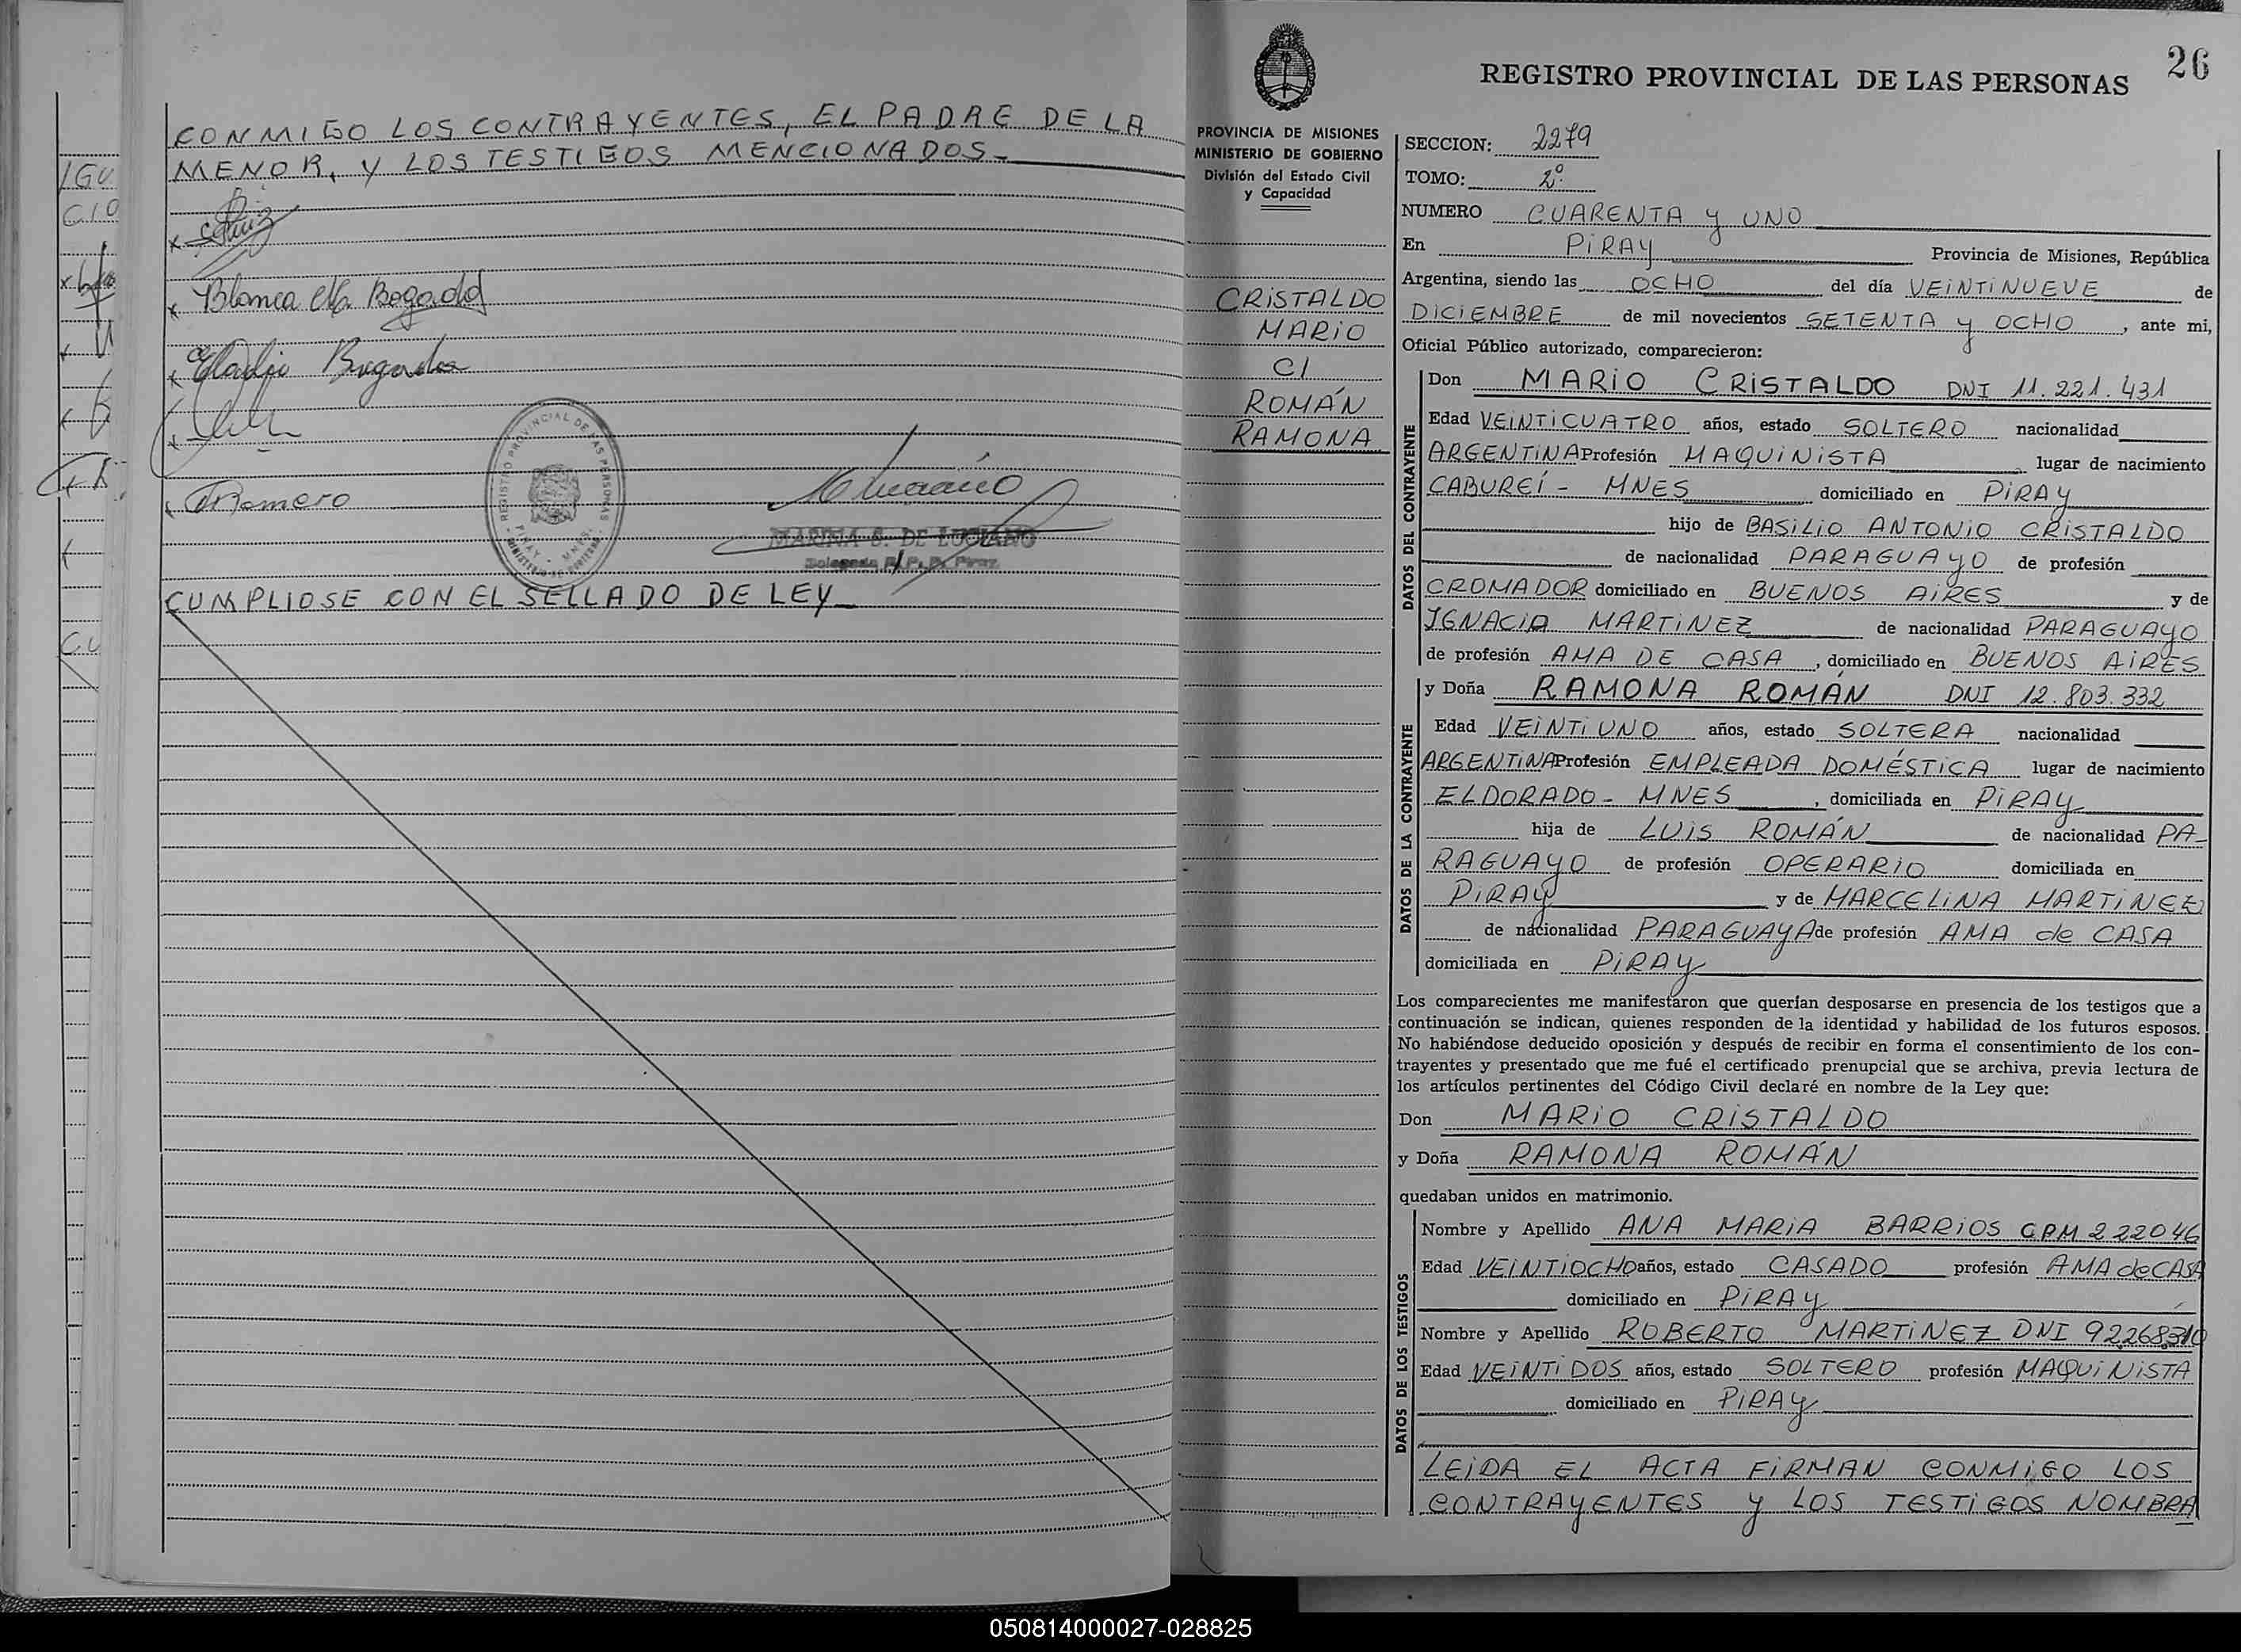 CONMIGO LOS CONTRAYENTES, EL PADRE DE LA
MENOR, Y LOS TESTIGOS MENCIONADOS.
x
x Blanca Bogado
x Eladio Bogado
x
x Romero
REGISTRO PROVINCIAL DE LAS PERSONAS
PIRAY - MNES.
MARINA S. DE LUCIANO
CUMPLIOSE CON EL SELLADO DE LEY
26
REGISTRO PROVINCIAL DE LAS PERSONAS
PROVINCIA DE MISIONES
MINISTERIO DE GOBIERNO
División del Estado Civil
y Capacidad
CRISTALDO
MARIO
C/
ROMÁN
RAMONA
SECCION: 2279
TOMO: 2º
NUMERO CUARENTA y UNO
En PIRAY Provincia de Misiones, República
Argentina, siendo las OCHO del día VEINTINUEVE de
DICIEMBRE de mil novecientos SETENTA y OCHO, ante mi,
Oficial Público autorizado, comparecieron:
DATOS DEL CONTRAYENTE
Don MARIO CRISTALDO DNI 11.221.431
Edad VEINTICUATRO años, estado SOLTERO nacionalidad
ARGENTINA Profesión MAQUINISTA lugar de nacimiento
CABUREÍ - MNES domiciliado en PIRAY
hijo de BASILIO ANTONIO CRISTALDO
de nacionalidad PARAGUAYO de profesión
CROMADOR domiciliado en BUENOS AIRES y de
IGNACIA MARTINEZ de nacionalidad PARAGUAYO
de profesión AMA DE CASA, domiciliado en BUENOS AIRES
DATOS DE LA CONTRAYENTE
y Doña RAMONA ROMÁN DNI 12.803.332
Edad VEINTIUNO años, estado SOLTERA nacionalidad
ARGENTINA Profesión EMPLEADA DOMÉSTICA lugar de nacimiento
ELDORADO - MNES, domiciliada en PIRAY
hija de LUIS ROMÁN de nacionalidad PA-
RAGUAYO de profesión OPERARIO domiciliada en
PIRAY y de MARCELINA MARTINEZ
de nacionalidad PARAGUAYA de profesión AMA de CASA
domiciliada en PIRAY
Los comparecientes me manifestaron que querían desposarse en presencia de los testigos que a
continuación se indican, quienes responden de la identidad y habilidad de los futuros esposos.
No habiéndose deducido oposición y después de recibir en forma el consentimiento de los con-
trayentes y presentado que me fué el certificado prenupcial que se archiva, previa lectura de
los artículos pertinentes del Código Civil declaré en nombre de la Ley que:
Don MARIO CRISTALDO
y Doña RAMONA ROMÁN
quedaban unidos en matrimonio.
DATOS DE LOS TESTIGOS
Nombre y Apellido ANA MARIA BARRIOS CPM 222046
Edad VEINTIOCHO años, estado CASADO profesión AMA de CASA
domiciliado en PIRAY
Nombre y Apellido ROBERTO MARTINEZ DNI
Edad VEINTIDOS años, estado SOLTERO profesión MAQUINISTA
domiciliado en PIRAY
LEIDA EL ACTA FIRMAN CONMIGO LOS
CONTRAYENTES y LOS TESTIGOS NOMBRA
050814000027-028825